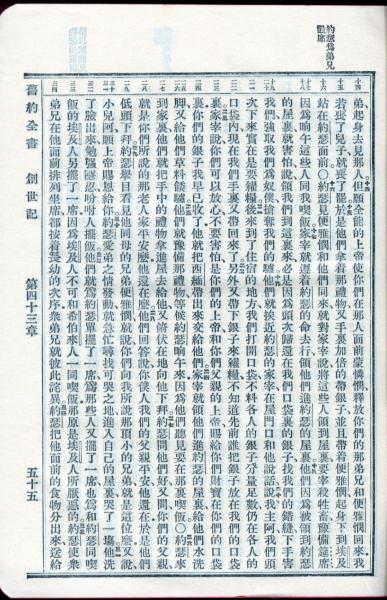 約瑟為弟兄
設席
弟起身去見那人但願全能的上帝使你們在那人面前蒙憐憫釋放你們的那弟兄和便雅憫回來我
若喪了兒子就喪了罷於是他們拿着那禮物又手裏加倍的帶銀子並且帶着便雅憫起身下到埃及
站在約瑟面前○約瑟見便雅憫和他們同來就對家宰說將這些人領到屋裏要宰殺牲畜豫備筵席
因為晌午這些人同我喫飯家宰就遵着約瑟的命去行領他們進約瑟的屋裏他們因為被領到約瑟
的屋裏就害怕說領我們到這裏來必是因為頭次歸還在我們口袋裏的銀子找我們的錯縫下手害
我們強取我們為奴僕搶奪我們的驢他們就挨近約瑟的家宰在屋門口和他說話說我主阿我們頭
次下來實在是要糴糧後來到了住宿的地方我們打開口袋不料各人的銀子分量足數仍在各人的
口袋內現在我們手裏又帶回來了另外又帶下銀子來糴糧不知道先前誰把銀子放在我們的口袋
裏家宰說你們可以放心不要害怕是你們的上帝和你們父親的上帝賜給你們財寶在你們的口袋
裏你們的銀子我早已收了他就把西緬帶出來交給他們家宰就領他們進約瑟的屋裏給他們水洗
脚又給他們草料餧驢他們就豫備那禮物等候約瑟晌午來因為他們聽見要在那裏喫飯○約瑟來
到家裏他們就把手中的禮物拿進屋去給他又俯伏在地向他下拜約瑟問他們好又問你們的父親
就是你們所說的那老人家平安麼他還在麼他們回答說你僕人我們的父親平安他還在於是他們
低頭下拜約瑟舉目看見他同母的兄弟便雅憫就說你們向我所說那頂小的兄弟就是這位麼又說
小兒阿願上帝賜恩給你約瑟愛弟之情發動就急忙尋找可哭之地進入自己的屋裏哭了一場他洗
了臉出來勉強隱忍吩咐人擺飯他們就為約瑟單擺了一席為那些人又擺了一席也為和約瑟同喫
飯的埃及人另擺了一席因為埃及人不可和希伯來人一同喫飯那原是埃及人所厭惡的約瑟使衆
弟兄在他面前排列坐席都按着長幼的次序衆弟兄就彼此詫異約瑟把他面前的食物分出來送給
舊約全書 創世記 第四十三章 五十五